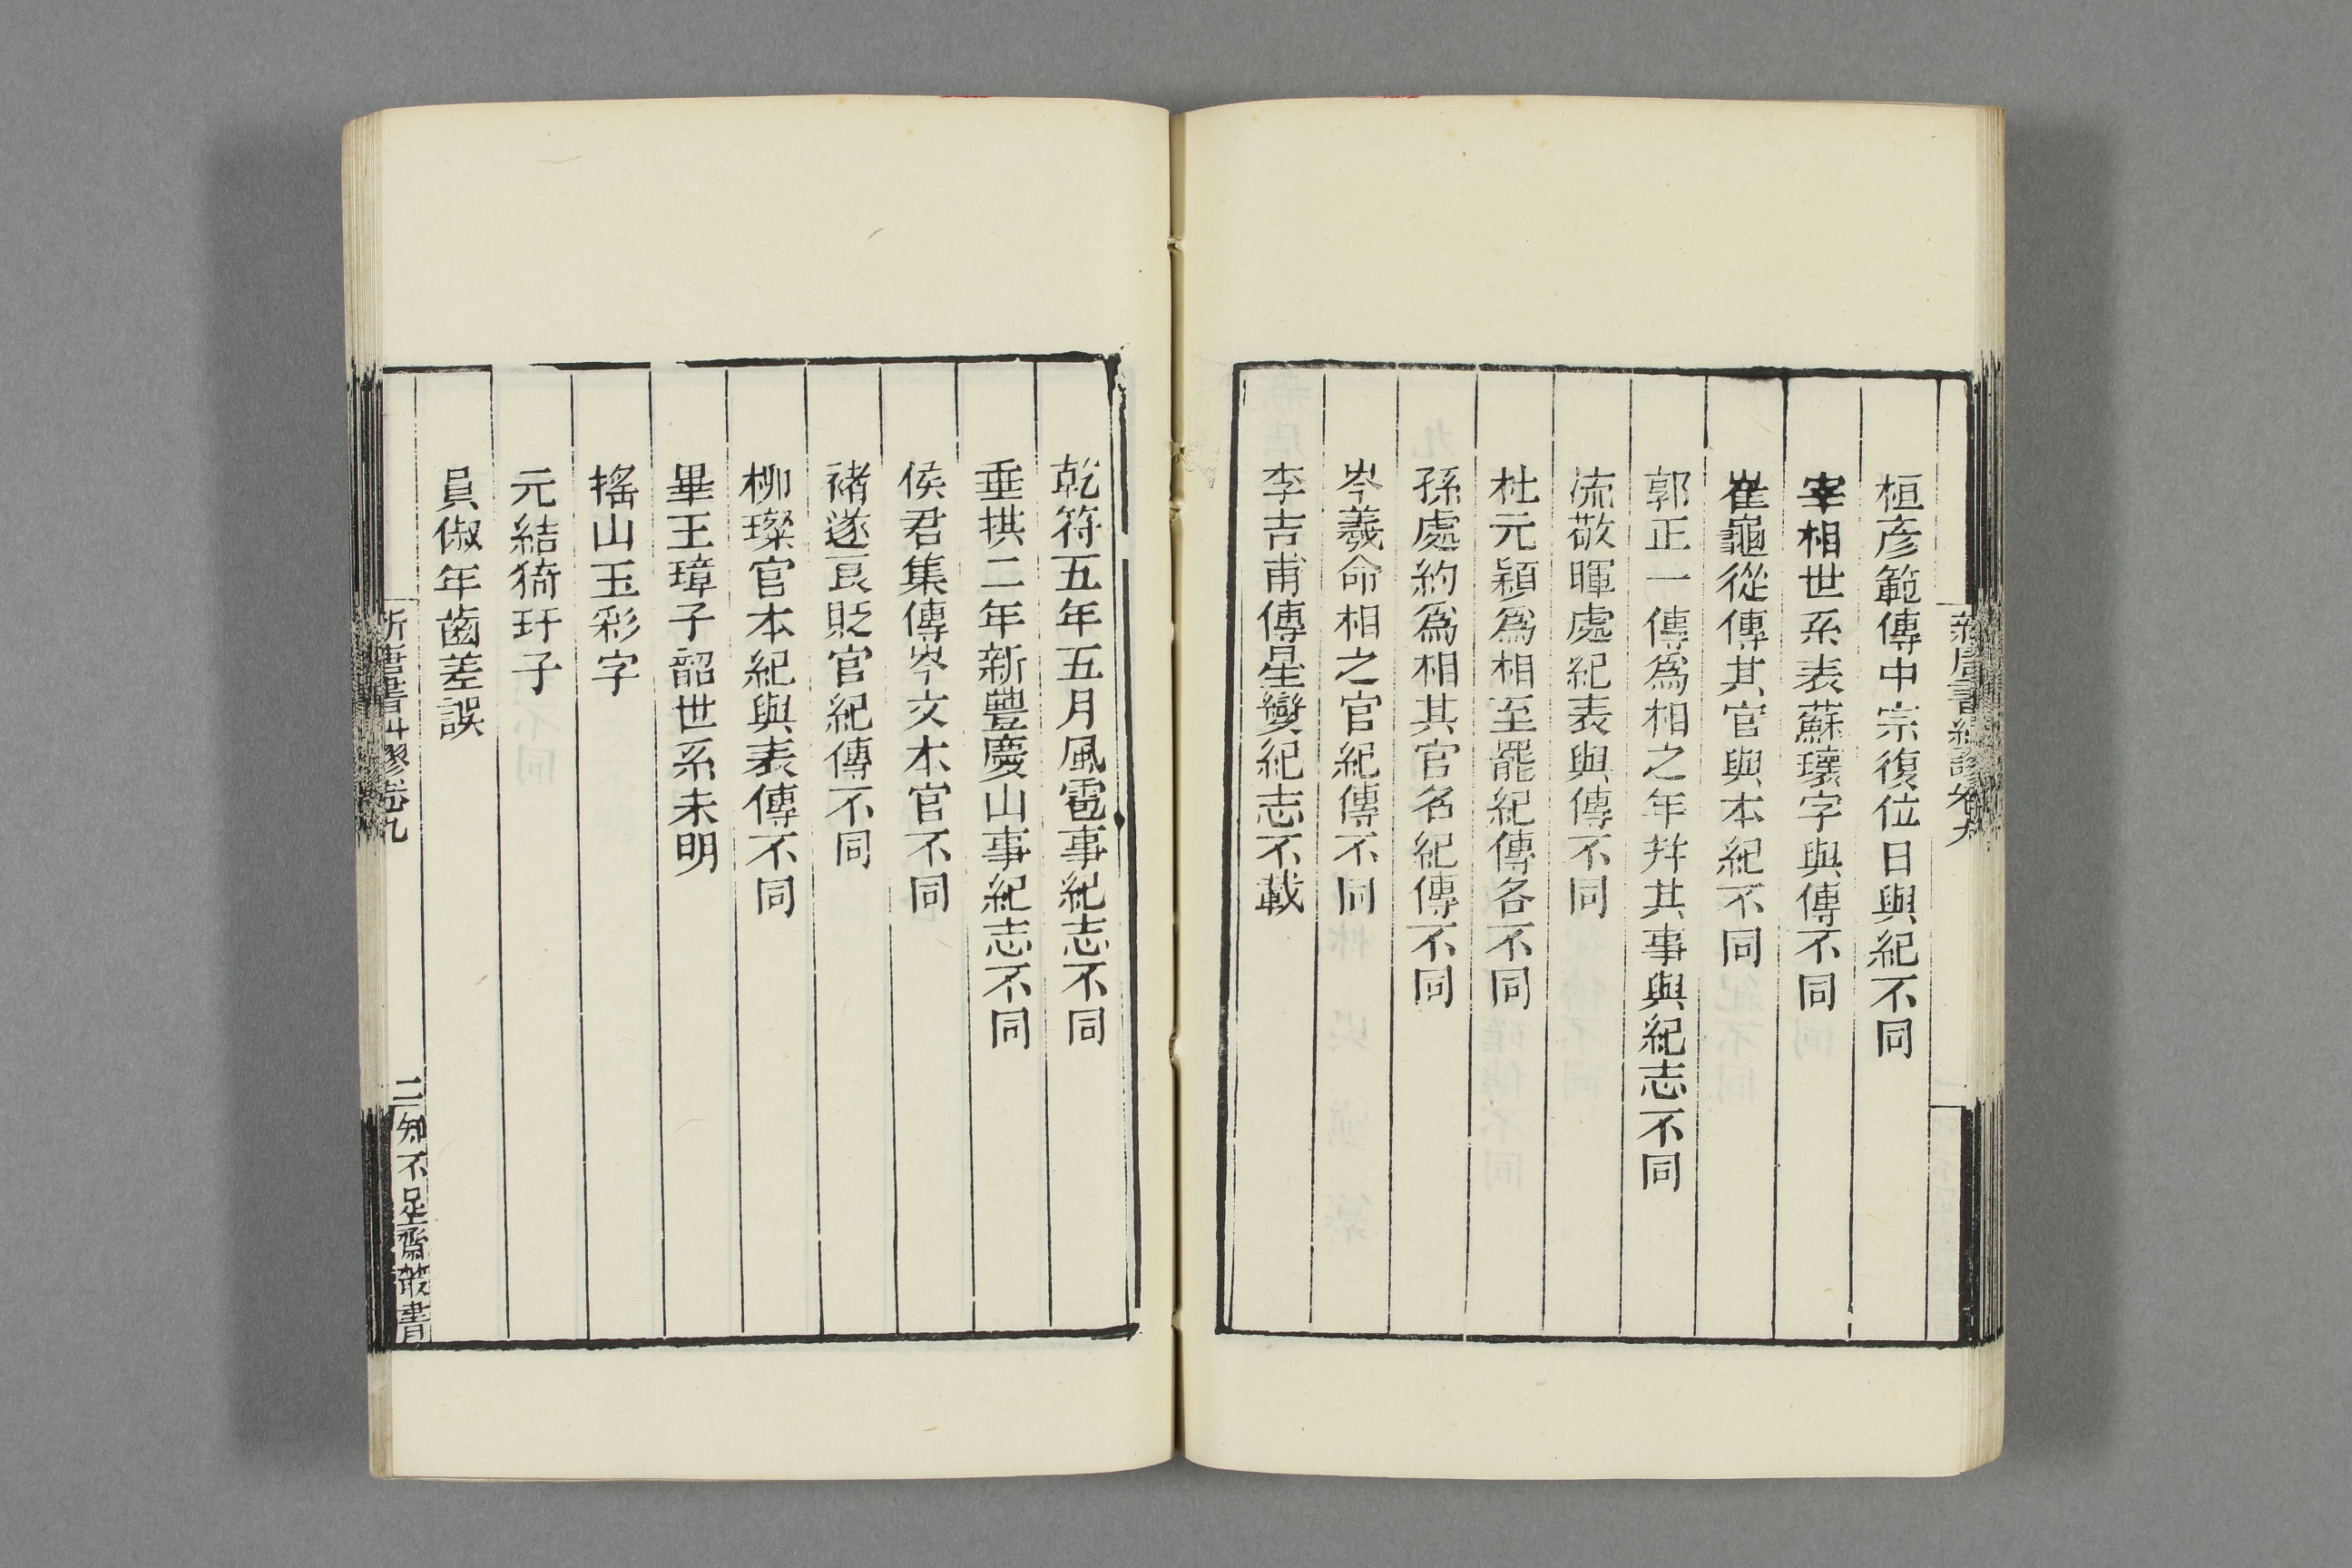 新唐書糾謬卷九
桓彥範傳中宗復位日與紀不同
宰相世系表蘇瓌字與傳不同
崔龜從傳其官與本紀不同
郭正一傳爲相之年幷其事與紀志不同
流敬暉處紀表與傳不同
杜元穎爲相至罷紀傳各不同
孫處約爲相其官名紀傳不同
岑羲命相之官紀傳不同
李吉甫傳星變紀志不載
乾符五年五月風雹事紀志不同
垂拱二年新豐慶山事紀志不同
侯君集傳岑文本官不同
褚遂良貶官紀傳不同
柳璨官本紀與表傳不同
畢王璋子韶世系未明
搖山玉彩字
元結猗玗子
員俶年齒差誤
新唐書糾謬卷九
二
知不足齋叢書